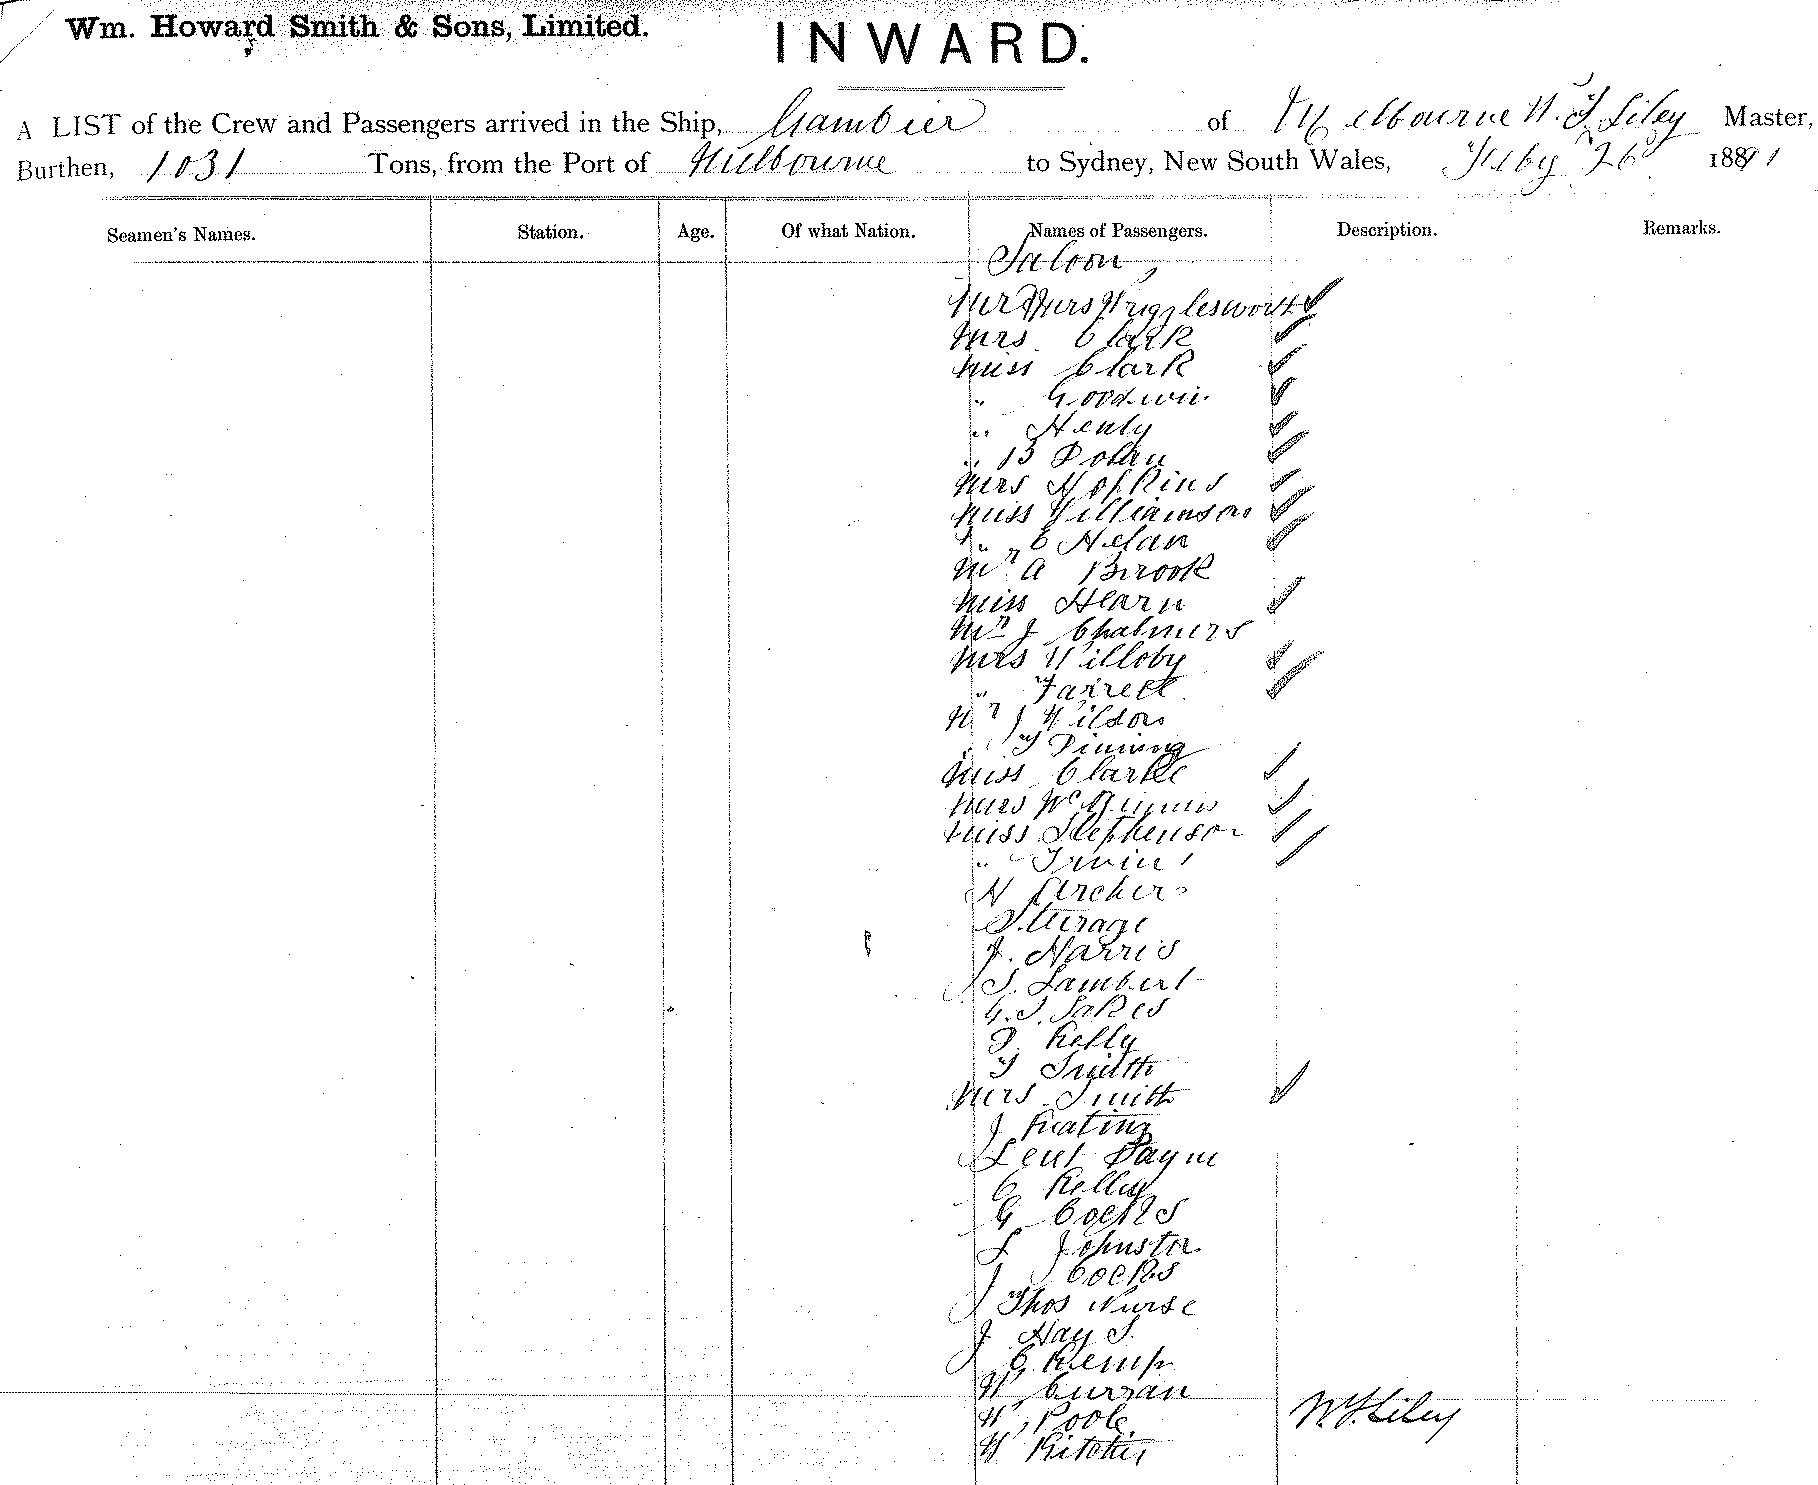 Wm. Howard Smith & Sons, Limited.
INWARD.
A LIST of the Crew and Passengers arrived in the Ship, Gambier of Melbourne W. F. Liley Master,
Burthen, 1031 Tons, from the Port of Melbourne to Sydney, New South Wales, Feby 26 1891
Seamen's Names. Station. Age. Of what Nation. Names of Passengers. Description. Remarks.
Saloon
Mr Mrs Wrigglesworth ✓
Mrs Clark ✓
Miss Clark ✓
" Goodwin ✓
" Henty ✓
" B Dolan ✓
Mrs Hopkins ✓
Miss Williamson ✓
" C Nelan ✓
Mr A Brook
Miss Hearn ✓
Mr J Chalmers
Mrs Willoby ✓
" Farrell ✓
Mr J Wilson
" F Dining
Miss Clarke ✓
Mrs ✓
Miss Stephenson ✓
" Irwin ✓
H Archer
Steerage
J. Harris
S. Lambert
G. S. Sakes
J Kelly
F Smith
Mrs Smith ✓
J Keating
Leut Payne
C Kelly
G Cocks
L Johnston
J Cocks
Thos Nurse
J Hay S.
C Kemp
W Curran
W. F. Liley
W Poole
W Ritchie